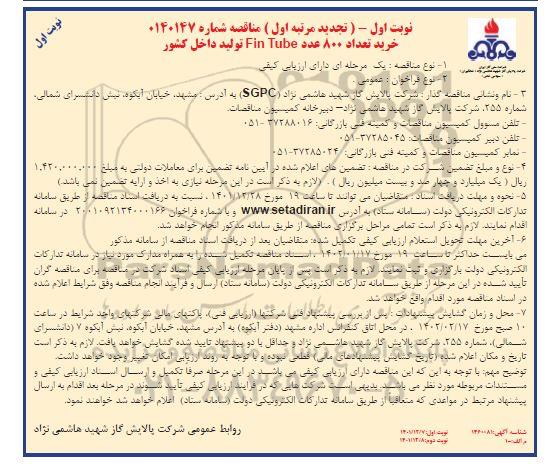 نوبت اول
نوبت اول – ( تجدید مرتبه اول ) مناقصه شماره ۰۱۴۰۱۴۷
خرید تعداد ۸۰۰ عدد Fin Tube تولید داخل کشور
۱- نوع مناقصه : یک مرحله ای دارای ارزیابی کیفی
۲- نوع فراخوان : عمومی .
۳ - نام ونشانی مناقصه گذار : شرکت پالایش گاز شهید هاشمی نژاد (SGPC) به آدرس : مشهد، خیابان آبکوه، نبش دانشسرای شمالی،
شماره ۲۵۵، شرکت پالایش گاز شهید هاشمی نژاد– دبیرخانه کمیسیون مناقصات.
- تلفن مسوول کمیسیون مناقصات و کمیته فنی بازرگانی: ۳۷۲۸۸۰۱۶ -۰۵۱
- تلفن دبیر کمیسیون مناقصات: ۳۷۲۸۵۰۴۵-۰۵۱
- نمابر کمیسیون مناقصات و کمیته فنی بازرگانی: ۳۷۲۸۵۰۲۴-۰۵۱
۴- نوع و مبلغ تضمین شرکت در مناقصه : تضمین های اعلام شده در آیین نامه تضمین برای معاملات دولتی به مبلغ ۱.۴۲۰.۰۰۰.۰۰۰
ریال ( یک میلیارد و چهار صد و بیست میلیون ریال ) . (لازم به ذکر است در این مرحله نیازی به اخذ و ارایه تضمین نمی باشد.)
۵- نحوه و مهلت دریافت اسناد : متقاضیان می توانند تا ساعت ۱۹ مورخ ۱۴۰۱/۱۲/۲۸ ، نسبت به دریافت اسناد مناقصه از طریق سامانه
تدارکات الکترونیکی دولت (سامانه ستاد) به آدرس www.setadiran.ir و با شماره فراخوان ۲۰۰۱۰۹۲۱۳۴۰۰۰۱۶۶ در سامانه
اقدام نمایند. لازم به ذکر است تمامی مراحل برگزاری مناقصه از طریق سامانه مذکور انجام خواهد شد.
۶- آخرین مهلت تحویل استعلام ارزیابی کیفی تکمیل شده: متقاضیان بعد از دریافت اسناد مناقصه از سامانه مذکور
می بایست حداکثر تا ساعت ۱۹ مورخ ۱۴۰۲/۰۱/۱۷ ، اسناد مناقصه تکمیل شده را به همراه مدارک مورد نیاز در سامانه تدارکات
الکترونیکی دولت بارگزاری و ثبت نمایند. لازم به ذکر است پس از پایان مرحله ارزیابی کیفی اسناد شرکت در مناقصه برای مناقصه گران
تأیید شده در این مرحله از طریق سامانه تدارکات الکترونیکی دولت (سامانه ستاد) ارسال و فرآیند انجام مناقصه وفق شرایط اعلام شده
در اسناد مناقصه مورد اقدام واقع خواهد شد.
۷- محل و زمان گشایش پیشنهادات : پس از بررسی پیشنهاد فنی شرکتها (ارزیابی فنی)، پاکتهای مالی شرکتهای واجد شرایط در ساعت
۱۰ صبح مورخ ۱۴۰۲/۰۲/۱۷ ، در محل اتاق کنفرانس اداره مشهد (دفتر آبکوه) به آدرس مشهد، خیابان آبکوه، نبش آبکوه ۷ (دانشسرای
شمالی)، شماره ۲۵۵، شرکت پالایش گاز شهید هاشمی نژاد و حداقل با دو پیشنهاد تایید شده گشایش خواهد یافت. لازم به ذکر است
تاریخ و مکان اعلام شده (تاریخ گشایش پیشنهادهای مالی) قطعی نبوده و با توجه به روند ارزیابی امکان تغییر وجود خواهد داشت.
توضیح مهم: با توجه به این که این مناقصه دارای ارزیابی کیفی می باشد در این مرحله صرفا تکمیل و ارسال اسناد ارزیابی کیفی و
مستندات مربوطه مورد نظر می باشد. بدیهی است شرکت هایی که در فرآیند ارزیابی کیفی تأیید شوند در مرحله بعد اقدام به ارسال
پیشنهاد مرتبط در مواعدی که متعاقباً از طریق سامانه تدارکات الکترونیکی دولت (سامانه ستاد) اعلام خواهد شد خواهند نمود.
روابط عمومی شرکت پالایش گاز شهید هاشمی نژاد
نوبت اول: ۱۴۰۱/۱۲/۷
نوبت دوم: ۱۴۰۱/۱۲/۸
شناسه آگهی: ۱۴۶۰۰۸۱